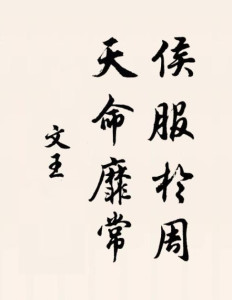 侯服於周
天命靡常
文王